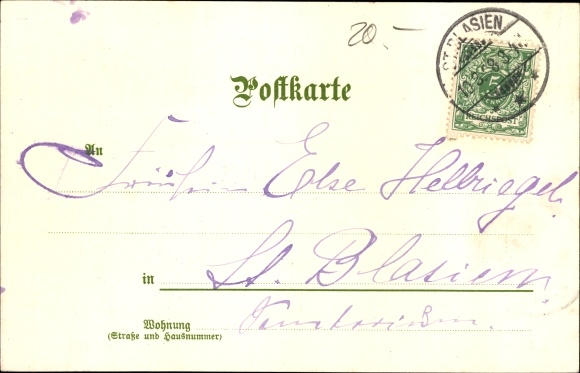 20.-
ST. BLASIEN
5
REICHSPOST
Postkarte
An
Fräulein Else Hellriegel.
in St. Blasien
Wohnung Sanatorium.
(Straße und Hausnummer)